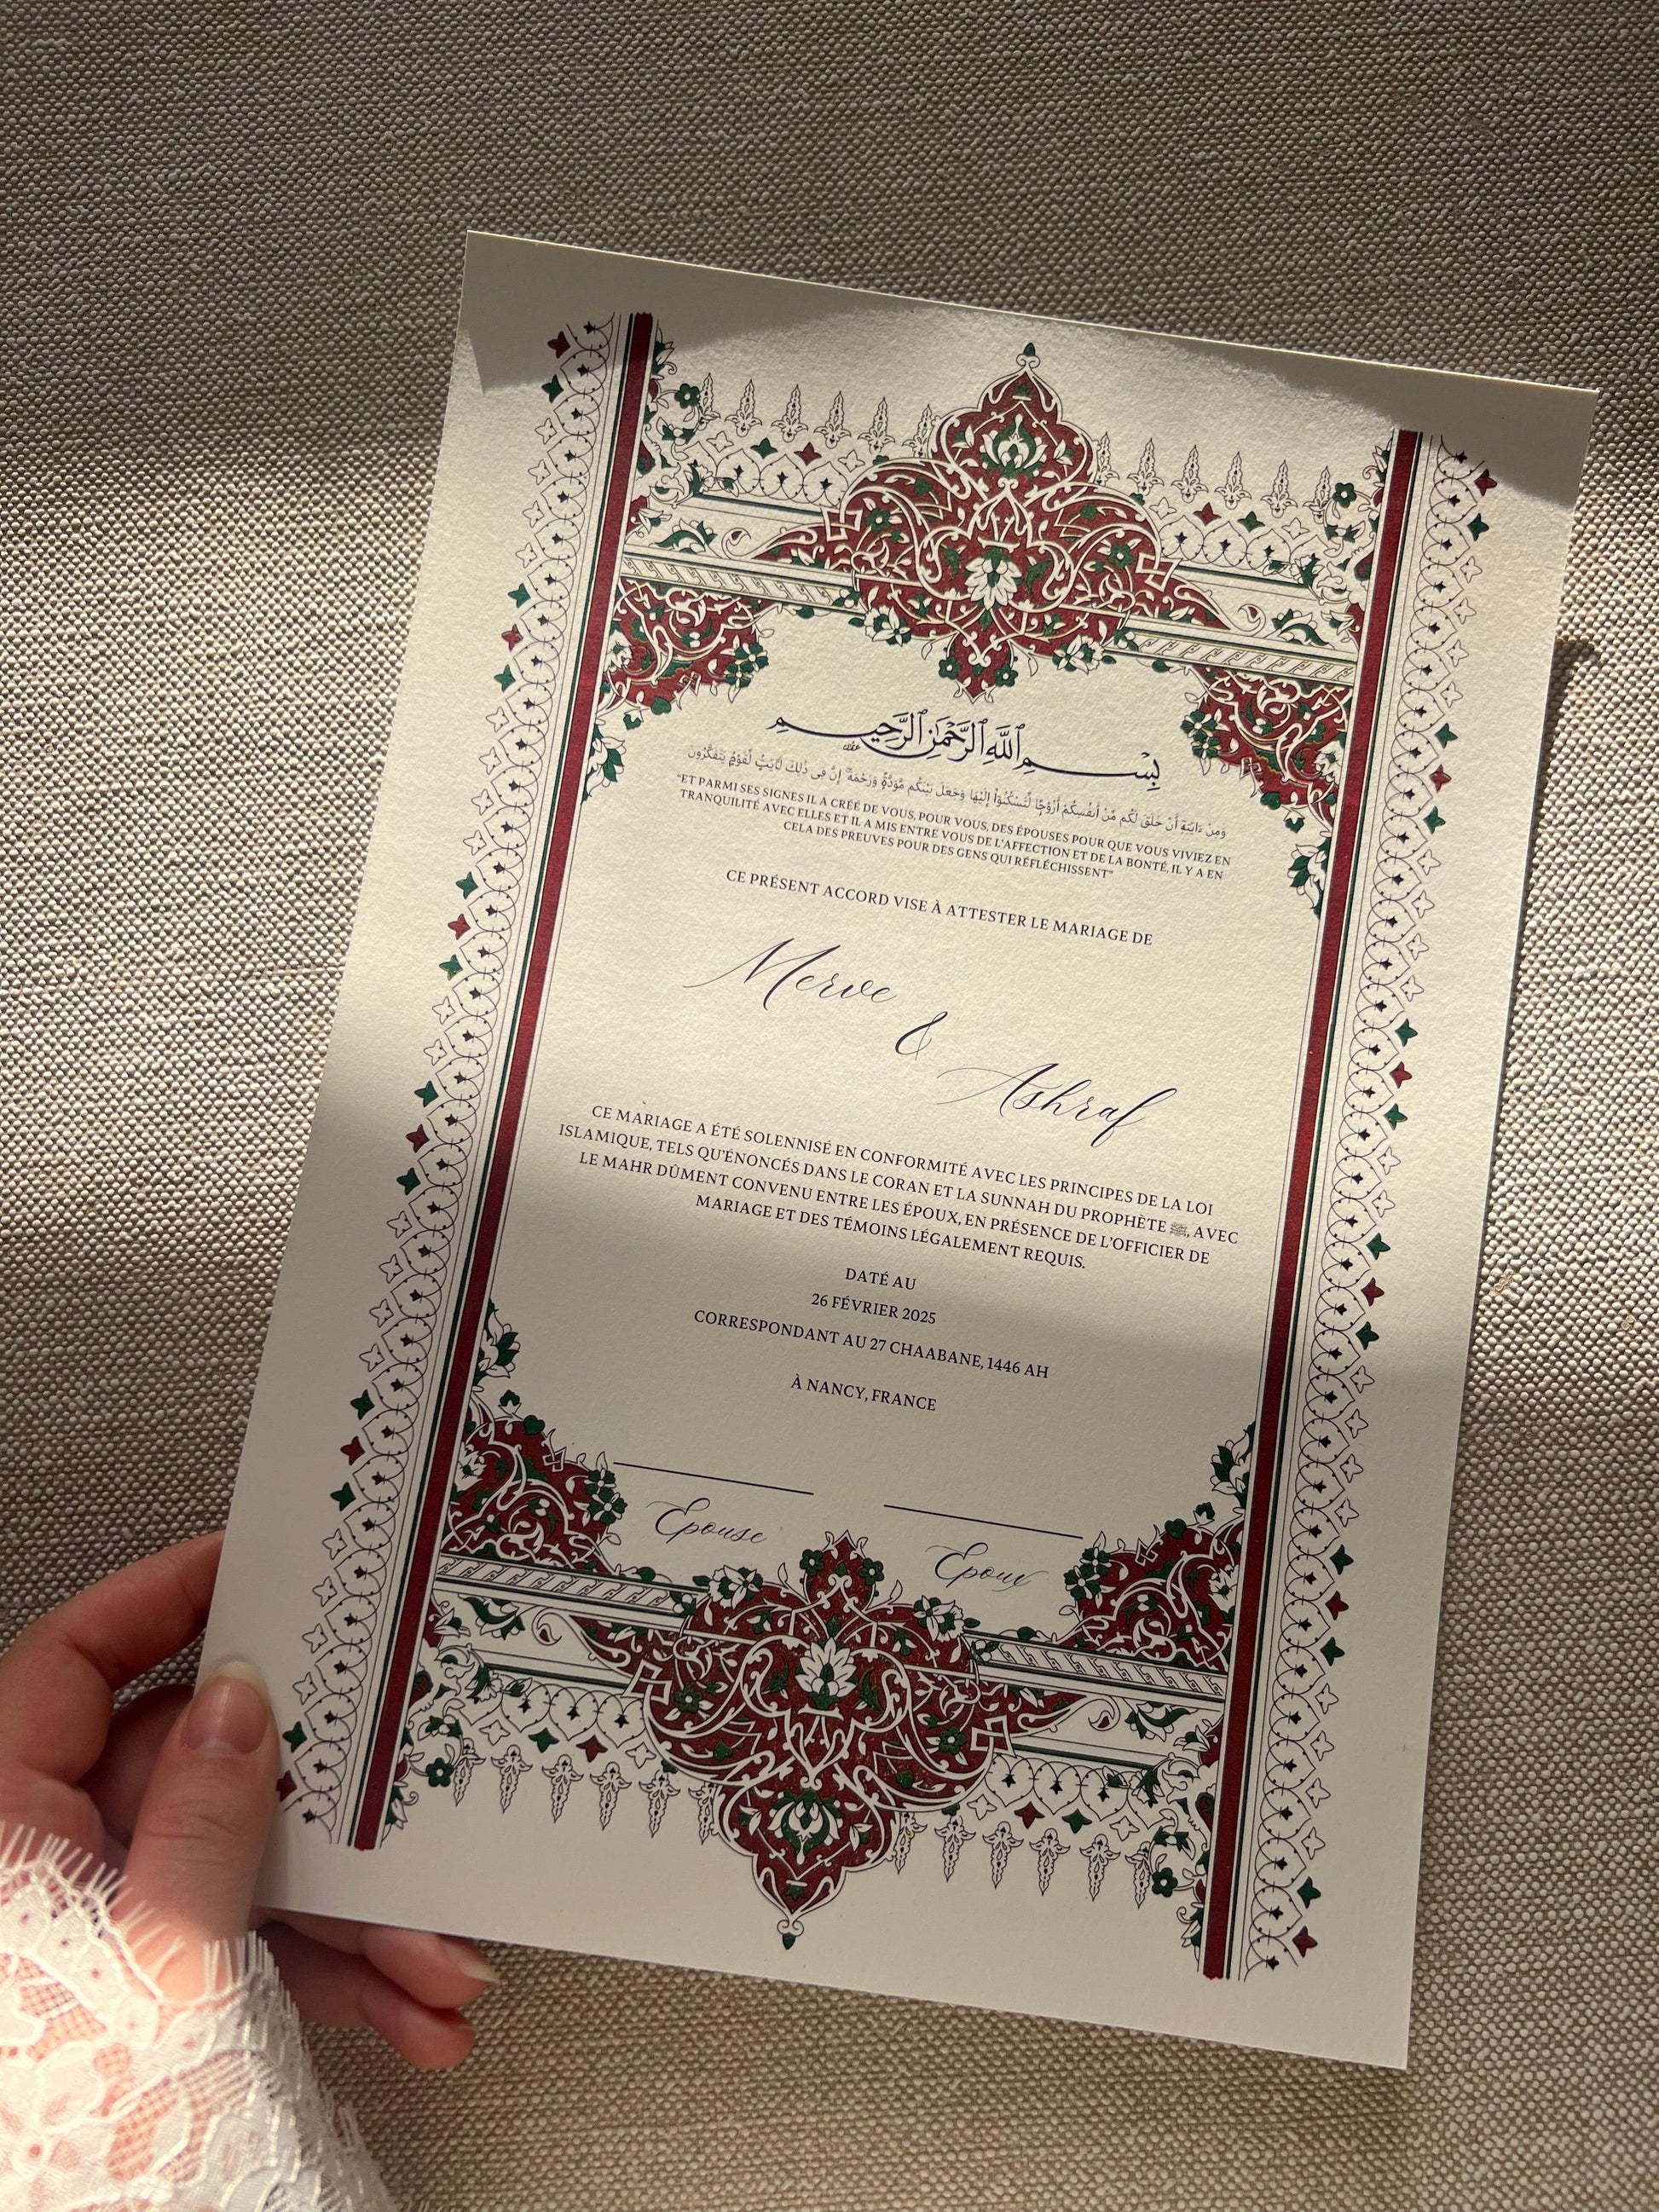 بِسْمِ ٱللَّهِ ٱلرَّحْمَٰنِ ٱلرَّحِيمِ
وَمِنْ ءَايَٰتِهِۦٓ أَنْ خَلَقَ لَكُم مِّنْ أَنفُسِكُمْ أَزْوَٰجًا لِّتَسْكُنُوٓا۟ إِلَيْهَا وَجَعَلَ بَيْنَكُم مَّوَدَّةً وَرَحْمَةً ۚ إِنَّ فِى ذَٰلِكَ لَءَايَٰتٍ لِّقَوْمٍ يَتَفَكَّرُونَ
"ET PARMI SES SIGNES IL A CRÉÉ DE VOUS, POUR VOUS, DES ÉPOUSES POUR QUE VOUS VIVIEZ EN
TRANQUILITÉ AVEC ELLES ET IL A MIS ENTRE VOUS DE L'AFFECTION ET DE LA BONTÉ, IL Y A EN
CELA DES PREUVES POUR DES GENS QUI RÉFLÉCHISSENT"
CE PRÉSENT ACCORD VISE À ATTESTER LE MARIAGE DE
Merve
&
Ashraf
CE MARIAGE A ÉTÉ SOLENNISÉ EN CONFORMITÉ AVEC LES PRINCIPES DE LA LOI
ISLAMIQUE, TELS QU'ÉNONCÉS DANS LE CORAN ET LA SUNNAH DU PROPHÈTE ﷺ, AVEC
LE MAHR DÛMENT CONVENU ENTRE LES ÉPOUX, EN PRÉSENCE DE L'OFFICIER DE
MARIAGE ET DES TÉMOINS LÉGALEMENT REQUIS.
DATÉ AU
26 FÉVRIER 2025
CORRESPONDANT AU 27 CHAABANE, 1446 AH
À NANCY, FRANCE
Épouse
Époux